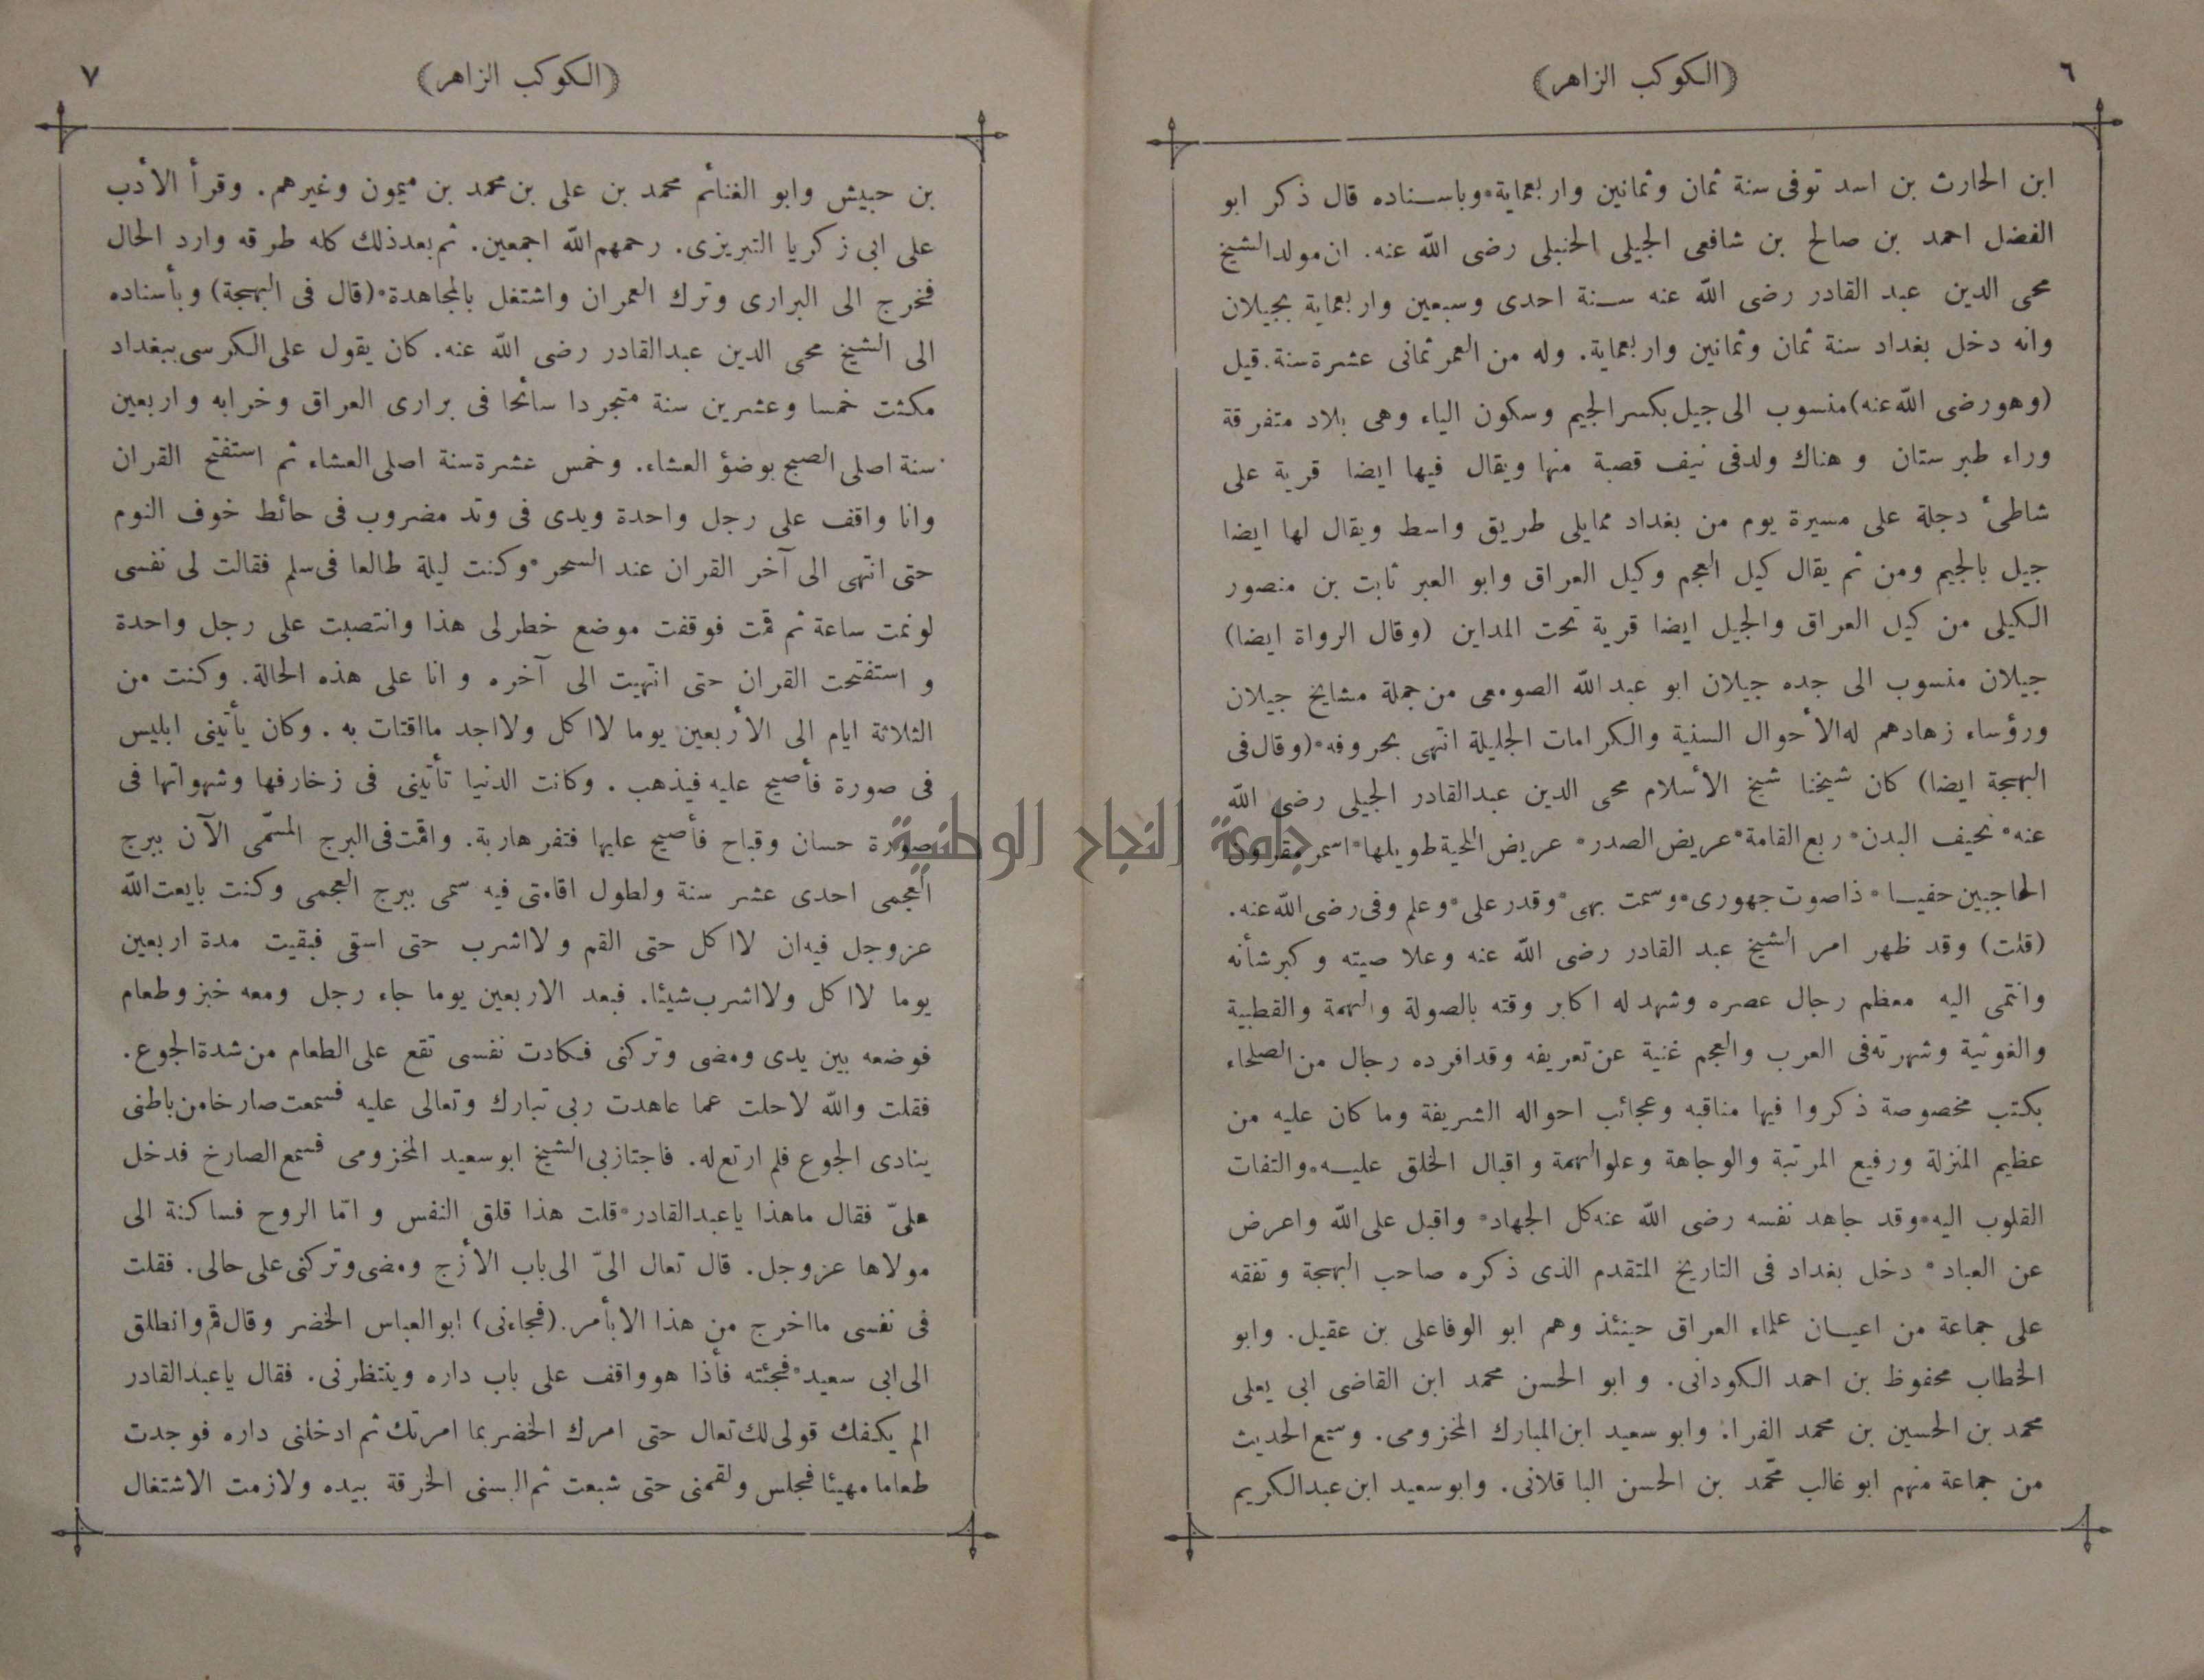 ٦
(الكوكب الزاهر)
ابن الحارث بن اسد توفى سنة ثمان وثمانين واربعماية • وباسناده قال ذكر ابو
الفضل احمد بن صالح بن شافعى الجيلى الحنبلى رضى الله عنه. ان مولد الشيخ
محى الدين عبد القادر رضى الله عنه سنة احدى وسبعين واربعماية بجيلان
وانه دخل بغداد سنة ثمان وثمانين واربعماية. وله من العمر ثمانى عشرة سنة. قيل
(وهو رضى الله عنه) منسوب الى جيل بكسر الجيم وسكون الياء وهى بلاد متفرقة
وراء طبرستان وهناك ولد فى نيف قصبة منها ويقال فيها ايضا قرية على
شاطئ دجلة على مسيرة يوم من بغداد ممايلى طريق واسط ويقال لها ايضا
جيل بالجيم ومن ثم يقال كيل العجم وكيل العراق وابو العبر ثابت بن منصور
الكيلى من كيل العراق والجيل ايضا قرية تحت المداين (وقال الرواة ايضا)
جيلان منسوب الى جده جيلان ابو عبد الله الصومعى من جملة مشايخ جيلان
ورؤساء زهادهم له الأحوال السنية والكرامات الجليلة انتهى بحروفه • (وقال فى
البهجة ايضا) كان شيخنا شيخ الأسلام محى الدين عبدالقادر الجيلى رضى الله
عنه • نحيف البدن • ربع القامة • عريض الصدر • عريض اللحية طويلها • اسمر مقرون
الحاجبين حفيا • ذا صوت جهورى • وسمت بهى • وقدر على • وعلم وفى رضى الله عنه.
(قلت) وقد ظهر امر الشيخ عبد القادر رضى الله عنه وعلا صيته وكبر شأنه
وانتمى اليه معظم رجال عصره وشهد له اكابر وقته بالصولة والهمة والقطبية
والغوثية وشهرته فى العرب والعجم غنية عن تعريفه وقد افرده رجال من الصلحاء
بكتب مخصوصة ذكروا فيها مناقبه وعجائب احواله الشريفة وما كان عليه من
عظيم المنزلة ورفيع المرتبة والوجاهة وعلو الهمة واقبال الخلق عليه • والتفات
القلوب اليه • وقد جاهد نفسه رضى الله عنه كل الجهاد • واقبل على الله واعرض
عن العباد • دخل بغداد فى التاريخ المتقدم الذى ذكره صاحب البهجة وتفقه
على جماعة من اعيان علماء العراق حينئذ وهم ابو الوفا على بن عقيل. وابو
الخطاب محفوظ بن احمد الكوذانى. وابو الحسن محمد ابن القاضى ابى يعلى
محمد بن الحسين بن محمد الفرا. وابو سعيد ابن المبارك المخزومى. وسمع الحديث
من جماعة منهم ابو غالب محمّد بن الحسن الباقلانى. وابو سعيد ابن عبدالكريم
٧
(الكوكب الزاهر)
بن حبيش وابو الغنائم محمد بن على بن محمد بن ميمون وغيرهم. وقرأ الأدب
على ابى زكريا التبريزى. رحمهم الله اجمعين. ثم بعد ذلك كله طرقه وارد الحال
فخرج الى البرارى وترك العمران واشتغل بالمجاهدة • (قال فى البهجة) وبأسناده
الى الشيخ محى الدين عبدالقادر رضى الله عنه. كان يقول على الكرسى ببغداد
مكثت خمسا وعشرين سنة متجردا سائحا فى برارى العراق وخرابه واربعين
سنة اصلى الصبح بوضؤ العشاء. وخمس عشرة سنة اصلى العشاء ثم استفتح القران
وانا واقف على رجل واحدة ويدى فى وتد مضروب فى حائط خوف النوم
حتى انتهى الى آخر القران عند السحر • وكنت ليلة طالعا فى سلم فقالت لى نفسى
لو نمت ساعة ثم قمت فوقفت موضع خطر لى هذا وانتصبت على رجل واحدة
و استفتحت القران حتى انتهيت الى آخره و انا على هذه الحالة. وكنت من
الثلاثة ايام الى الأربعين يوما لا اكل ولا اجد ما اقتات به. وكان يأتينى ابليس
فى صورة فأصيح عليه فيذهب. وكانت الدنيا تأتينى فى زخارفها وشهواتها فى
صورة حسان وقباح فأصيح عليها فتفر هاربة. واقمت فى البرج المسمّى الآن ببرج
العجمى احدى عشر سنة ولطول اقامتى فيه سمى ببرج العجمى وكنت بايعت الله
عز وجل فيه ان لا اكل حتى القم ولا اشرب حتى اسقى فبقيت مدة اربعين
يوما لا اكل ولا اشرب شيئا. فبعد الاربعين يوما جاء رجل ومعه خبز وطعام
فوضعه بين يدى ومضى وتركنى فكادت نفسى تقع على الطعام من شدة الجوع.
فقلت والله لاحلت عما عاهدت ربى تبارك وتعالى عليه فسمعت صارخا من باطنى
ينادى الجوع فلم ارتع له. فاجتاز بى الشيخ ابو سعيد المخزومى فسمع الصارخ فدخل
علىّ فقال ما هذا ياعبدالقادر • قلت هذا قلق النفس و امّا الروح فساكنة الى
مولاها عز وجل. قال تعال الىّ الى باب الأزج ومضى وتركنى على حالى. فقلت
فى نفسى ما اخرج من هذا الا بأمر. (فجاءنى) ابو العباس الخضر وقال قم وانطلق
الى ابى سعيد • فجئته فأذا هو واقف على باب داره وينتظرنى. فقال ياعبدالقادر
الم يكفك قولى لك تعال حتى امرك الخضر بما امرتك ثم ادخلنى داره فوجدت
طعاما مهيئا فجلس ولقمنى حتى شبعت ثم البسنى الخرقة بيده ولازمت الاشتغال
جامعة النجاح الوطنية